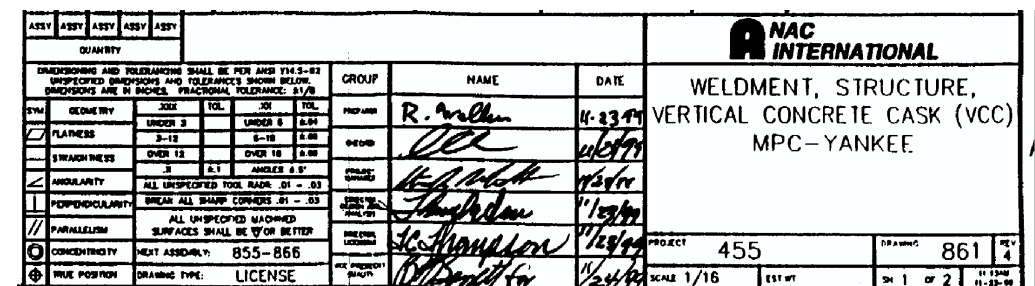 ASSY ASSY ASSY ASSY ASSY
QUANTITY
DIMENSIONING AND TOLERANCING SHALL BE PER ANSI Y14.5-82
UNSPECIFIED DIMENSIONS AND TOLERANCES SHOWN BELOW.
DIMENSIONS ARE IN INCHES. FRACTIONAL TOLERANCE: ±1/8
SYM GEOMETRY .XXX TOL. .XX TOL.
UNDER 3 UNDER 6
FLATNESS 3-12 6-18
STRAIGHTNESS OVER 12 OVER 18
.X ±.1 ANGLES ±.5°
ANGULARITY ALL UNSPECIFIED TOOL RADII .01 - .03
PERPENDICULARITY BREAK ALL SHARP CORNERS .01 - .03
PARALLELISM ALL UNSPECIFIED MACHINED
SURFACES SHALL BE OR BETTER
CONCENTRICITY NEXT ASSEMBLY: 855-866
TRUE POSITION DRAWING TYPE: LICENSE
GROUP NAME DATE
PREPARER R. 11-23-99
CHECKER
PROJECT MANAGER
11/23/99
DIRECTOR LICENSING Thompson 11/23/99
VICE PRESIDENT QUALITY 11/24/99
NAC
INTERNATIONAL
WELDMENT, STRUCTURE,
VERTICAL CONCRETE CASK (VCC)
MPC-YANKEE
PROJECT 455 DRAWING 861 REV 4
SCALE 1/16 EST WT SH 1 OF 2 11-23-99